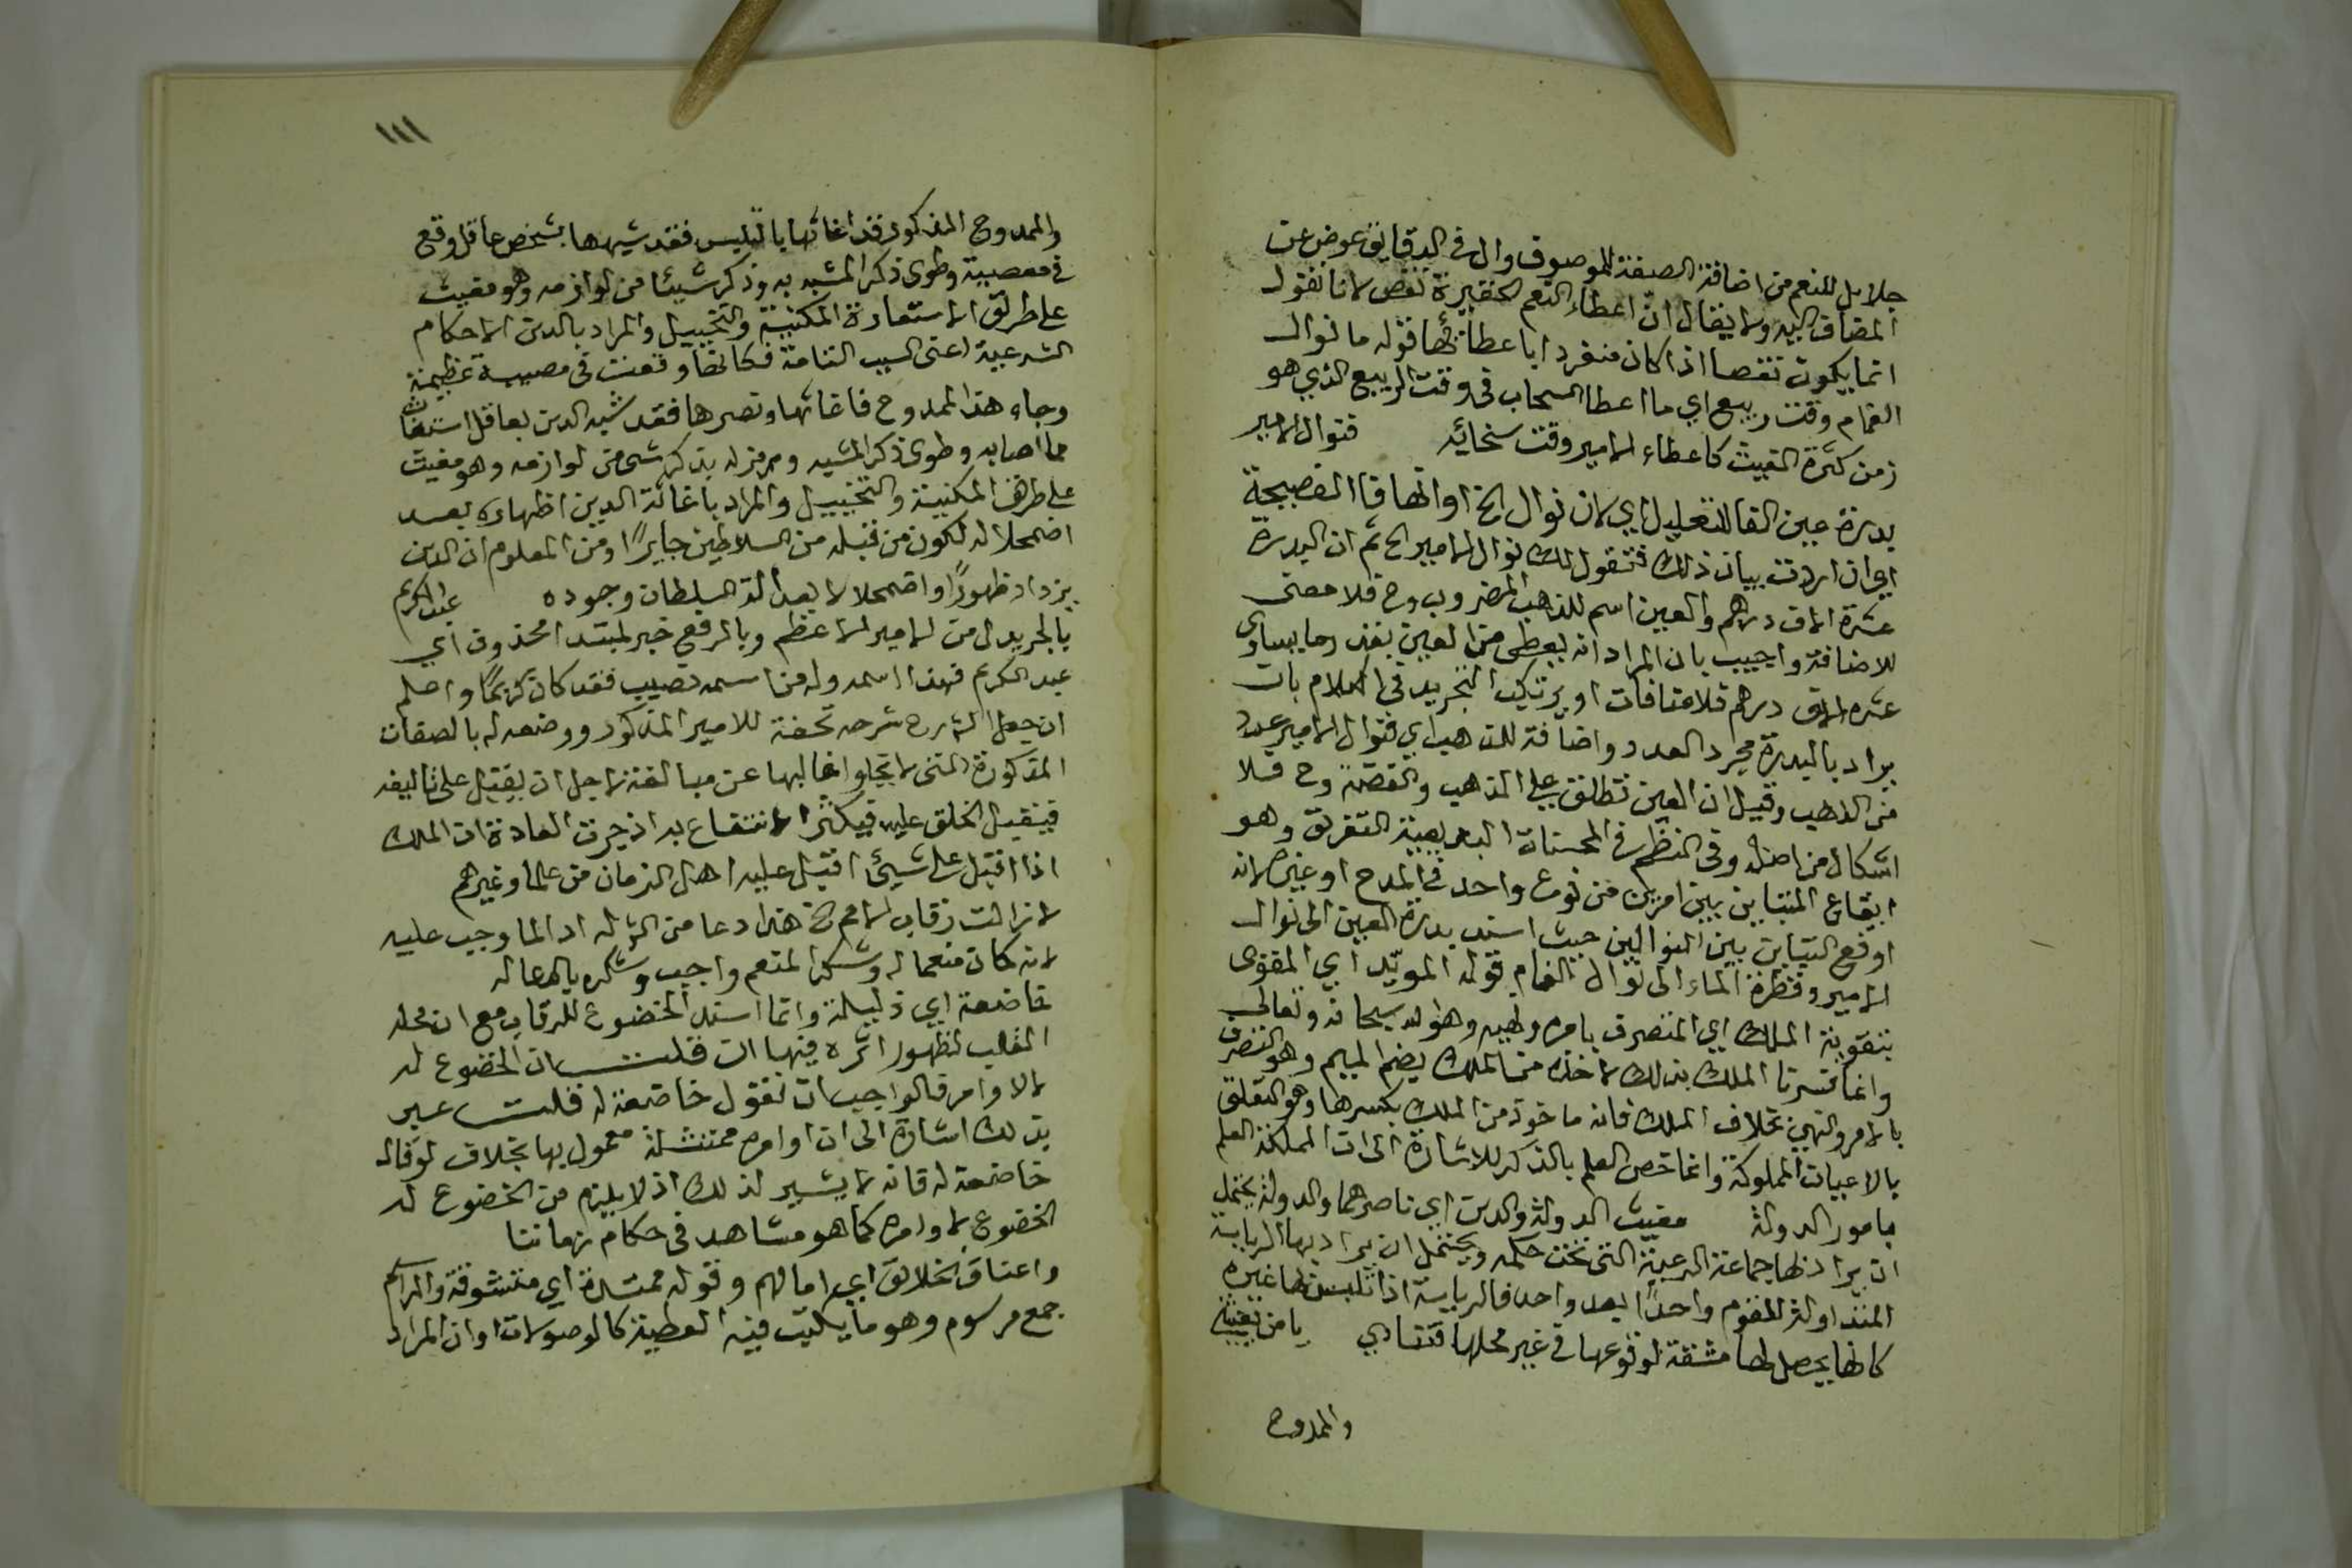 جلايل للنعم من اضافة الصفة للموصوف وال في الدقايق عوض عن
المضاف اليه ولا يقال ان اعطاء النعم الحقيرة نقص لانا نقول
انما يكون نقصا اذا كان منفردا باعطائها قوله ما نوال
الغمام وقت ربيع اي ما اعطا السحاب في وقت الربيع الذي هو
زمن كثرة الغيث كاعطاء الامير وقت سخائه فنوال الامير
بدرة عين الفا للتعليل اي لان نوال الخ او انها فا الفصيحة
اي ان اردت بيان ذلك فنقول لك نوال الامير الخ ثم ان البدرة
عشرة الاف درهم والعين اسم للذهب المضروب وح فلا معنى
للاضافة واجيب بان المراد انه يعطى من العين بقدر ما يساوي
عشرة الاف درهم فلا منافات او يرتكب التجريد في الكلام بان
يراد بالبدرة مجرد العدد واضافة للذهب اي فنوال الامير عدد
من الذهب وقيل ان العين تطلق على الذهب والفضة وح فلا
اشكال من اصله وفي النظم في المحسنات البديعية التفريق وهو
ايقاع التباين بين امرين من نوع واحد في المدح او غيره لانه
اوقع التباين بين النوالين حيث اسند بدرة العين الى نوال
الامير وقطرة الماء الى نوال الغمام قوله المويّد اي المقوى
بتقوية الملك اي المتصرف بامره ونهيه وهو الله سبحانه وتعالى
وانما فسرنا الملك بذلك لاخذه من الملك بضم الميم وهو التصرف
بالامر والنهي بخلاف الملك فانه ماخوذ من الملك بكسرها وهو التعلق
بالاعيان المملوكة وانما خص العلم بالذكر للاشارة الى ان المملكة العلم
بامور الدولة مغيث الدولة والدين اي ناصرهما والدولة يحتمل
ان يراد بها جماعة الرعية التي تحت حكمه ويحتمل ان يراد بها الرياسة
المتداولة للقوم واحدًا بعد واحد فالرياسة اذا تلبس بها غيره
كانها يحصل لها مشقة لوقوعها في غير محلها فتنادي يا من يغيث
والممدوح
١١١
والممدوح المذكور قد اغاثها بالتلبس فقد شبهها بشخص عاقل وقع
في مصيبة وطوى ذكر المشبه به وذكر شيئا من لوازمه وهو مغيث
على طريق الاستعارة المكنية والتخييل والمراد بالدين الاحكام
الشرعية اعنى السبب التامة فكانها وقعت في مصيبة عظيمة
وجاء هذا الممدوح فاغاثها ونصرها فقد شبه الدين بعاقل استغاث
مما اصابه وطوى ذكر المشبه ورمز له بذكر شي من لوازمه وهو مغيث
على طريق المكنية والتخييل والمراد باغاثة الدين اظهاره بعد
اضمحلاله لكون من قبله من السلاطين جايرًا ومن المعلوم ان الدين
يزداد ظهورًا واضمحلالا بعدالة السلطان وجوده عبد الكريم
بالجر بدل من الامير الاعظم وبالرفع خبر لمبتدا محذوف اي
عبد الكريم فهذا اسمه وله من اسمه نصيب فقد كان كريمًا واصلم
ان جعل الشارح شرحه تحفة للامير المذكور ووضعه له بالصفات
المذكورة التي لا تخلوا غالبها عن مبالغة لاجل ان يقبل على تاليفه
فيقبل الخلق عليه فيكثر الانتفاع به اذ جرت العادة ان الملك
اذا اقبل على شيئ اقبل عليه اهل الزمان من علما وغيرهم
لا زالت رقاب الامم الخ هذا دعا من الشر له ادا لما وجب عليه
لانه كان منعما له وشكر المنعم واجب وشكره بالدعا له
خاضعة اي ذليلة وانما اسند الخضوع للرقاب مع ان محله
القلب لظهور اثره فيها ان قلت ان الخضوع له
لالاوامره فالواجب ان نقول خاضعة له قلت عبر
بذلك اشارة الى ان اوامره ممتثلة معمول بها بخلاف لو قال
خاضعة له فانه لا يشير لذلك اذ لا يلزم من الخضوع له
الخضوع لاوامره كما هو مشاهد في حكام زماننا
واعناق الخلايق اي امالهم وقوله ممتدة اي متشوفة والمراسم
جمع مرسوم وهو ما يكتب فيه العطية كالوصولات او ان المراد